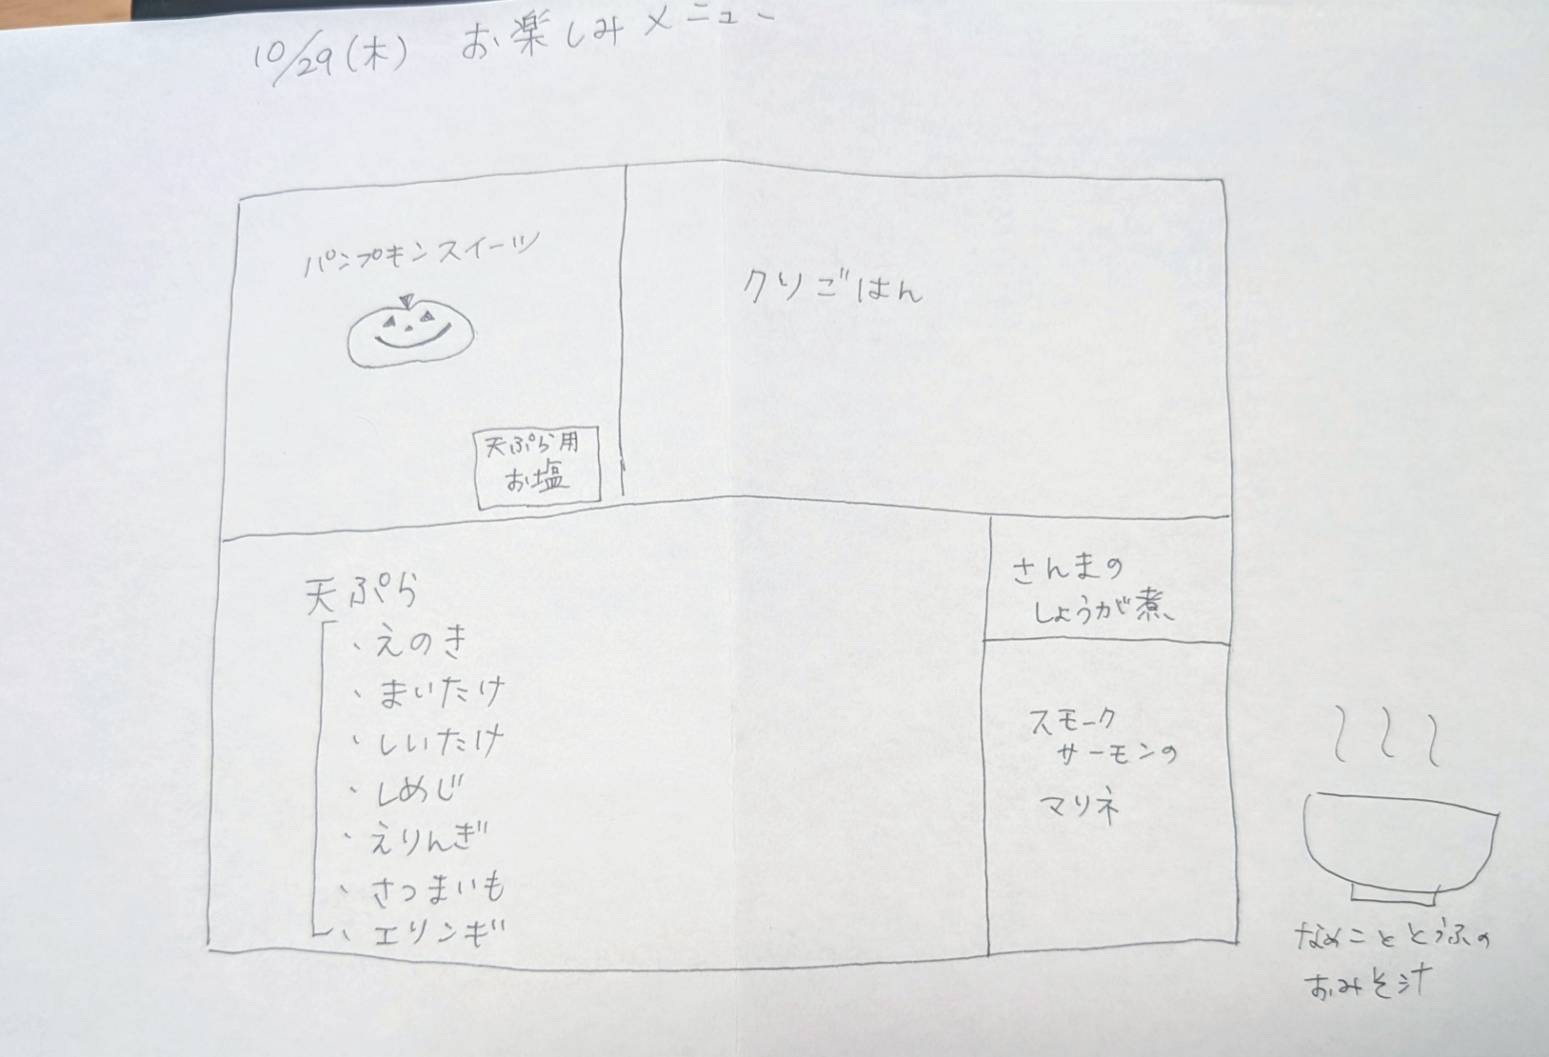 10/29(木) お楽しみメニュー
パンプキンスイーツ
クリごはん
天ぷら用
お塩
天ぷら
・えのき
・まいたけ
・しいたけ
・しめじ
・えりんぎ
・さつまいも
・エリンギ
さんまの
しょうが煮
スモーク
サーモンの
マリネ
なめこととうふの
おみそ汁